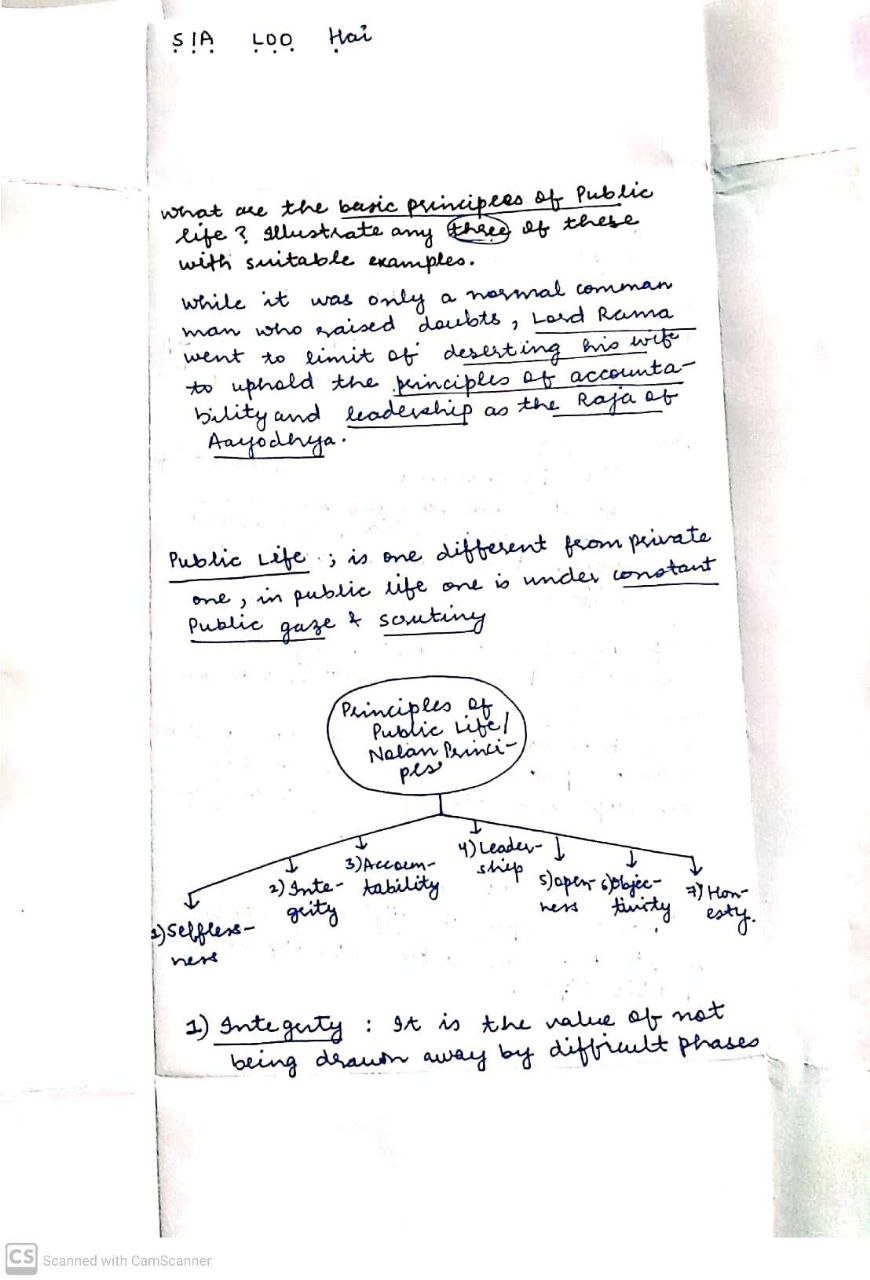 SIA LOO Hai
What are the basic principles of Public
life? Illustrate any three of these
with suitable examples.
While it was only a normal comman
man who raised doubts, Lord Rama
went to limit of deserting his wife
to uphold the principles of accounta-
bility and leadership as the Raja of
Aayodhya.
Public Life ; is one different from private
one, in public life one is under constant
Public gaze & scrutiny
Principles of
Public Life/
Nolan Princi-
ples
1) Selfless-
ness
2) Inte-
grity
3) Accoun-
tability
4) Leader-
ship
5) open-
ness
6) Objec-
tivity
7) Hon-
esty.
1) Integrity : It is the value of not
being drawn away by difficult phases
CS Scanned with CamScanner